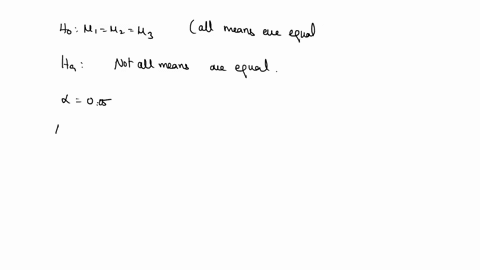 H₀: μ₁ = μ₂ = μ₃ (all means are equal
Hₐ: Not all means are equal.
α = 0.05